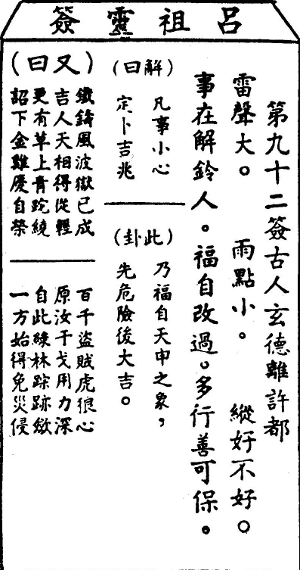 呂祖靈簽
第九十二簽古人玄德離許都
雷聲大。 雨點小。 縱好不好。
事在解鈴人。福自改過。多行善可保。
(解曰)
凡事小心
定卜吉兆
(此卦)
乃福自天申之象，
先危險後大吉。
(又曰)
鐵鑄風波獄已成
吉人天相得從輕
更有草上青蛇繞
詔下金雞慶自榮
百千盜賊虎狼心
原汝干戈用力深
自此綠林踪跡斂
一方始得免災侵